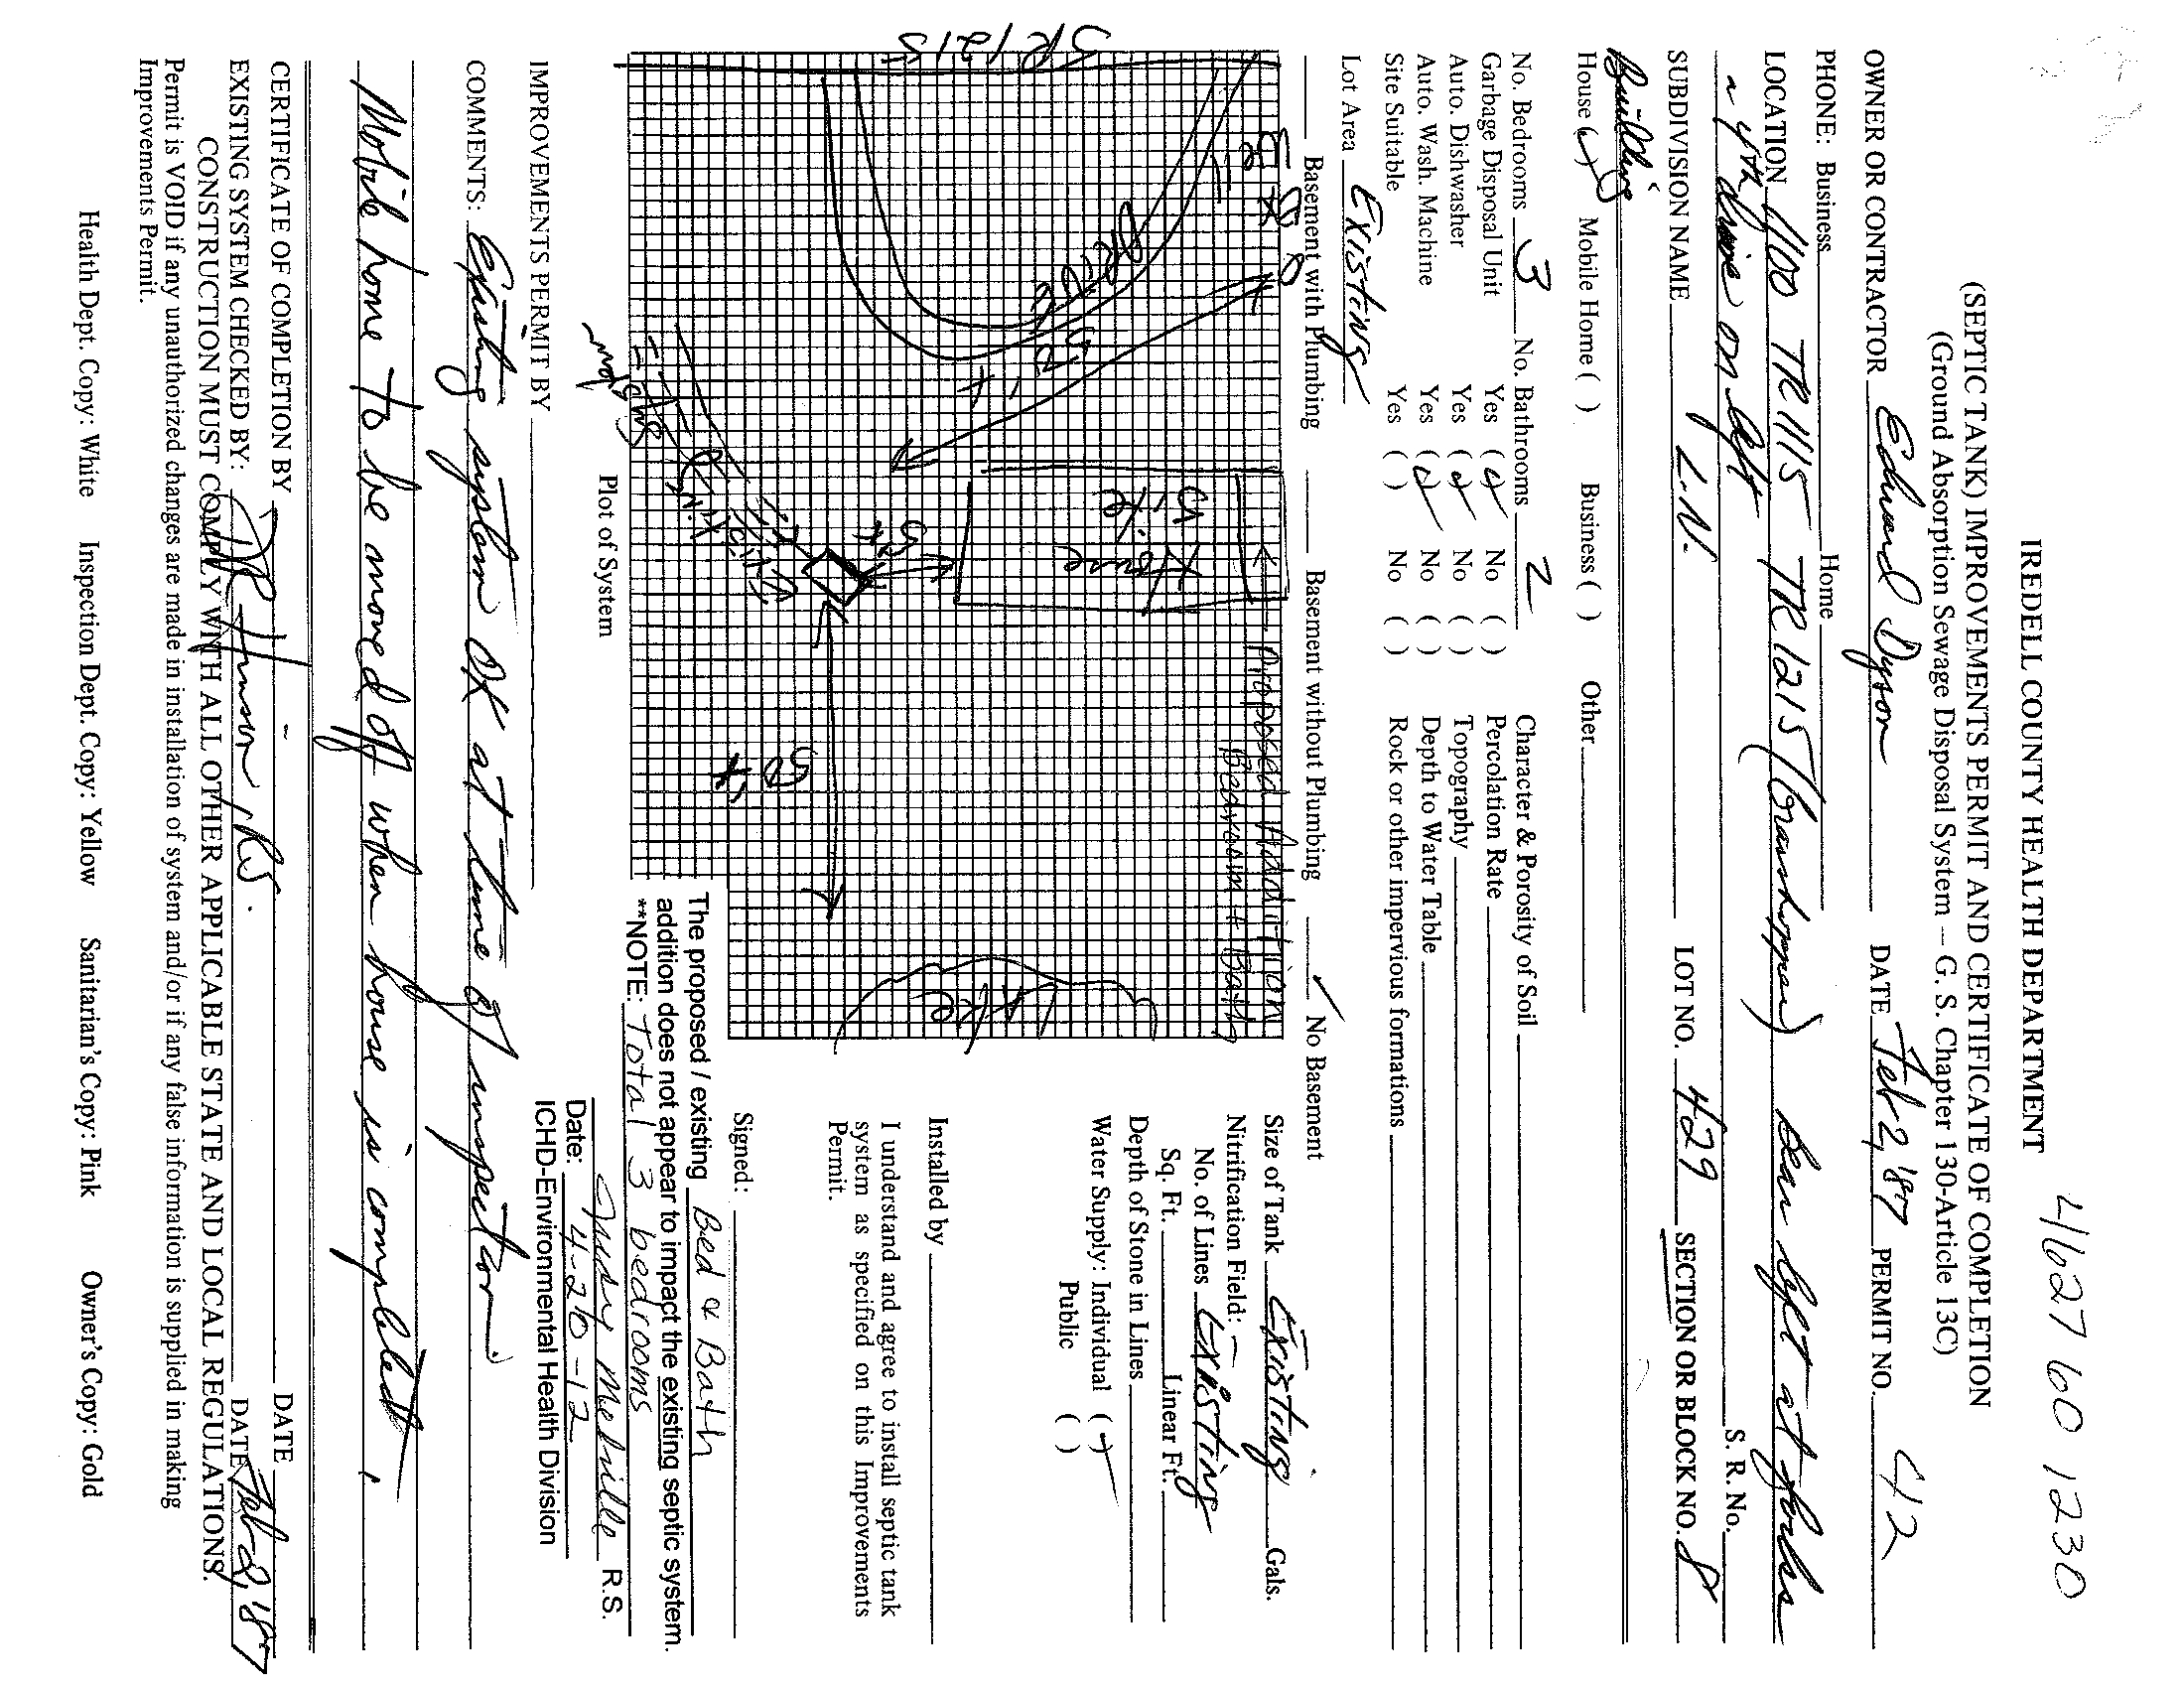 4627 60 1230
IREDELL COUNTY HEALTH DEPARTMENT
(SEPTIC TANK) IMPROVEMENTS PERMIT AND CERTIFICATE OF COMPLETION
(Ground Absorption Sewage Disposal System — G. S. Chapter 130-Article 13C)
OWNER OR CONTRACTOR Edward Dyson DATE Feb 2, '87 PERMIT NO. 42
PHONE: Business Home
LOCATION TR 1115 TR 1215 (Grasshopper) Bear left at forks
4th drive on left S. R. No.
SUBDIVISION NAME L.N. LOT NO. 429 SECTION OR BLOCK NO. 8
Building
House (✓) Mobile Home ( ) Business ( ) Other
No. Bedrooms 3 No. Bathrooms 2 Character & Porosity of Soil
Garbage Disposal Unit Yes (✓) No ( ) Percolation Rate
Auto. Dishwasher Yes (✓) No ( ) Topography
Auto. Wash. Machine Yes (✓) No ( ) Depth to Water Table
Site Suitable Yes ( ) No ( ) Rock or other impervious formations
Lot Area Existing
Basement with Plumbing Basement without Plumbing ✓ No Basement
Proposed Addition
Bedroom + Bath
House
Drive
Lake
SR 1215
5 ft
50 ft
Existing
System
Plot of System
Size of Tank Existing Gals.
Nitrification Field:
No. of Lines Existing
Sq. Ft. Linear Ft.
Depth of Stone in Lines
Water Supply: Individual (✓)
Public ( )
Installed by
I understand and agree to install septic tank
system as specified on this Improvements
Permit.
Signed:
The proposed / existing Bed & Bath
addition does not appear to impact the existing septic system.
**NOTE: Total 3 bedrooms
Judy Melville R.S.
Date: 4-26-12
ICHD-Environmental Health Division
IMPROVEMENTS PERMIT BY
COMMENTS: Existing system OK at time of inspection.
Mobile home to be moved off when house is completed.
CERTIFICATE OF COMPLETION BY DATE
EXISTING SYSTEM CHECKED BY: RS. DATE Feb 2, '87
CONSTRUCTION MUST COMPLY WITH ALL OTHER APPLICABLE STATE AND LOCAL REGULATIONS.
Permit is VOID if any unauthorized changes are made in installation of system and/or if any false information is supplied in making
Improvements Permit.
Health Dept. Copy: White Inspection Dept. Copy: Yellow Sanitarian's Copy: Pink Owner's Copy: Gold